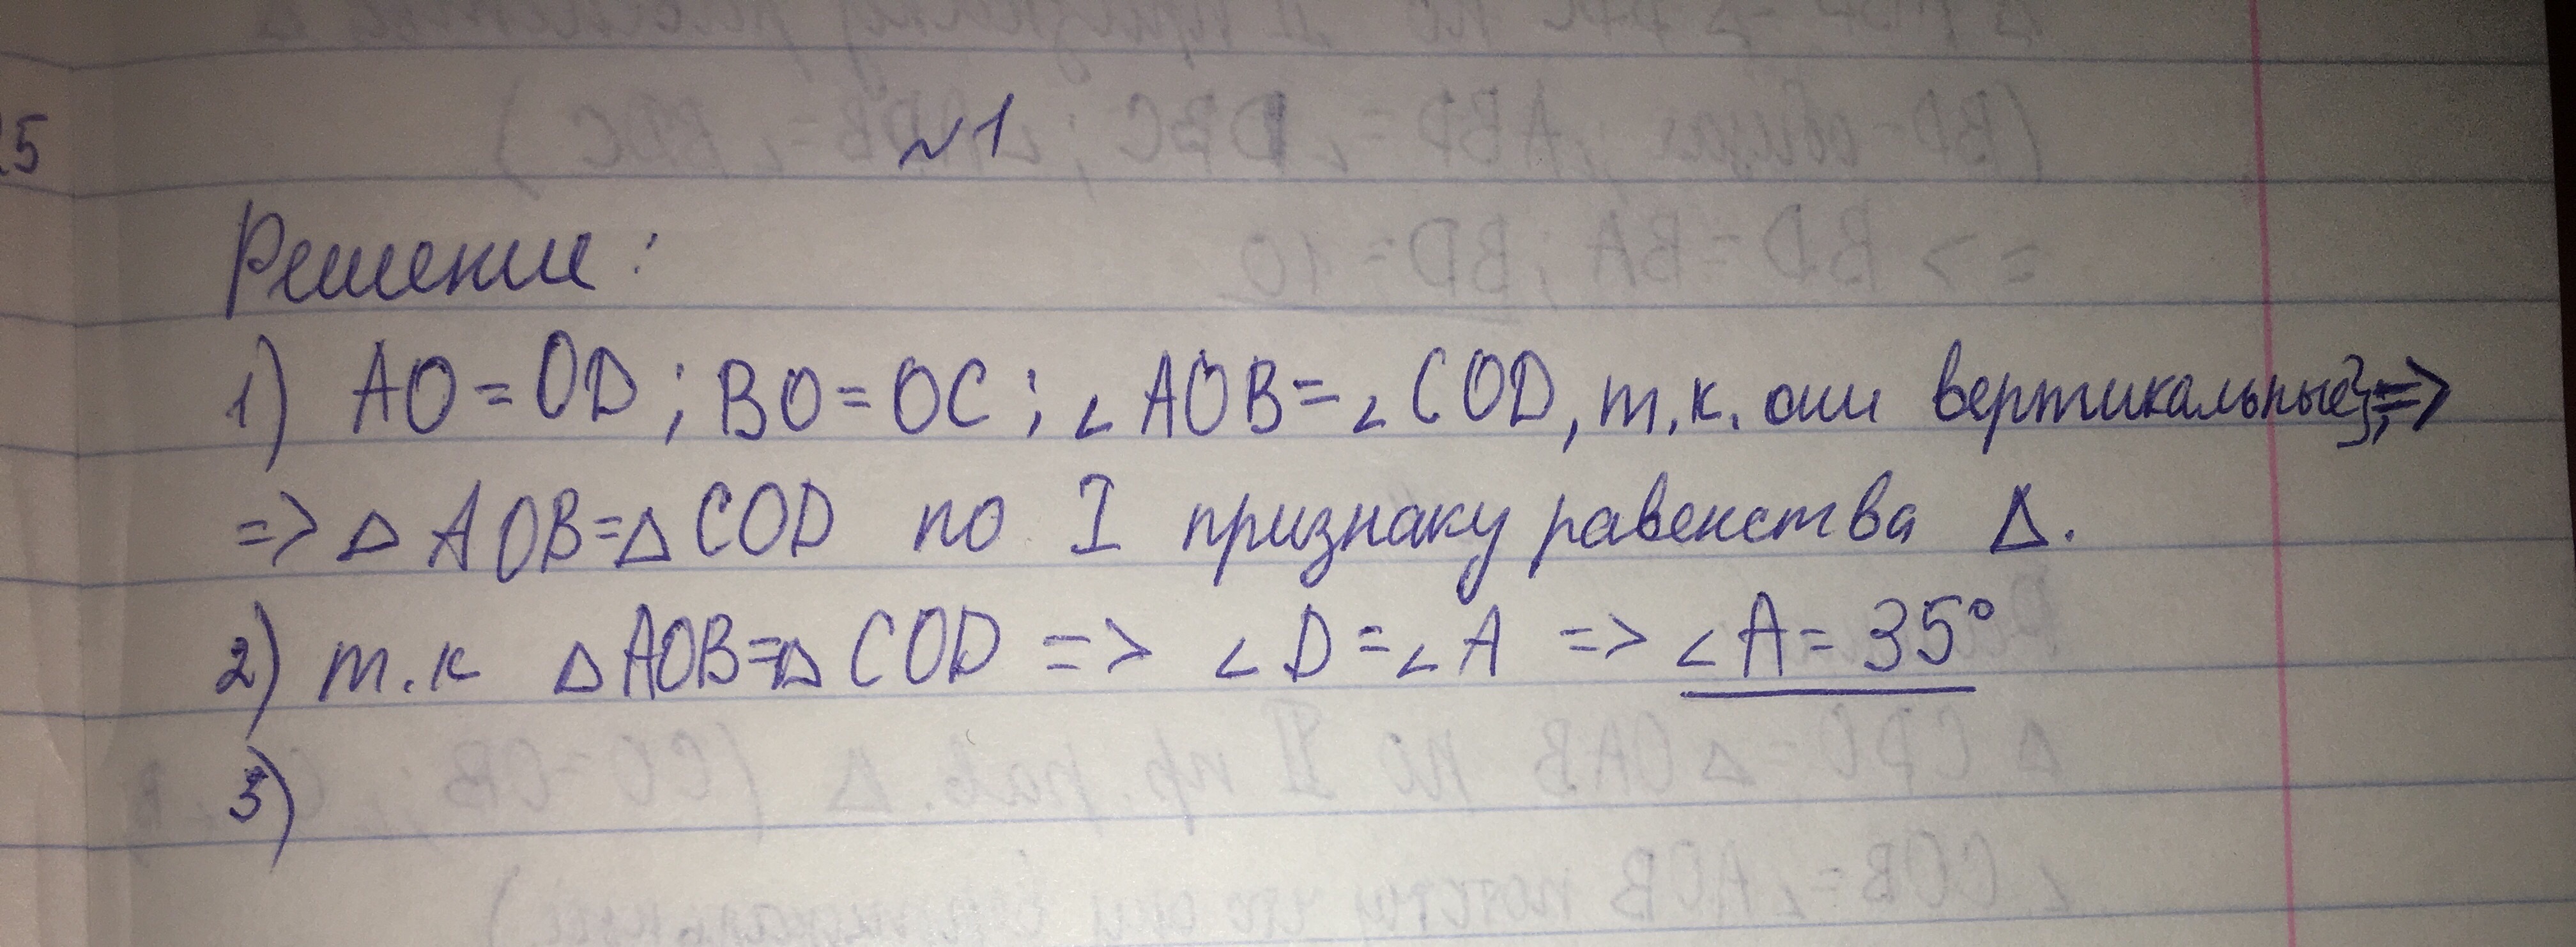 25
№1
Решение:
1) AO=OD; BO=OC; ∠AOB=∠COD, т.к. они вертикальные}; =>
=> △AOB=△COD по I признаку равенства △.
2) т.к △AOB=△COD => ∠D=∠A => ∠A=35°
3)